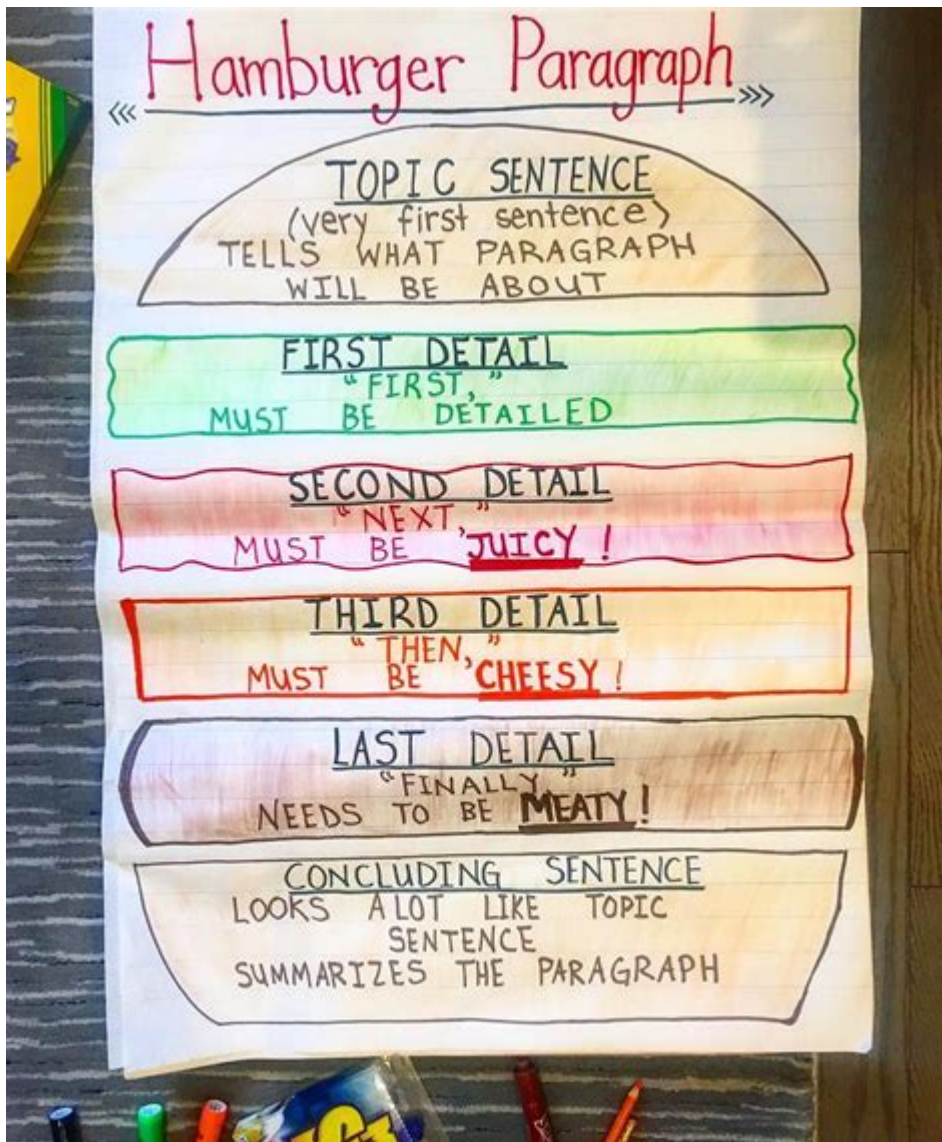 Hamburger Paragraph
<<< >>>
TOPIC SENTENCE
(very first sentence)
TELLS WHAT PARAGRAPH
WILL BE ABOUT
FIRST DETAIL
"FIRST,"
MUST BE DETAILED
SECOND DETAIL
"NEXT,"
MUST BE JUICY!
THIRD DETAIL
"THEN,"
MUST BE CHEESY!
LAST DETAIL
"FINALLY,"
NEEDS TO BE MEATY!
CONCLUDING SENTENCE
LOOKS A LOT LIKE TOPIC
SENTENCE
SUMMARIZES THE PARAGRAPH